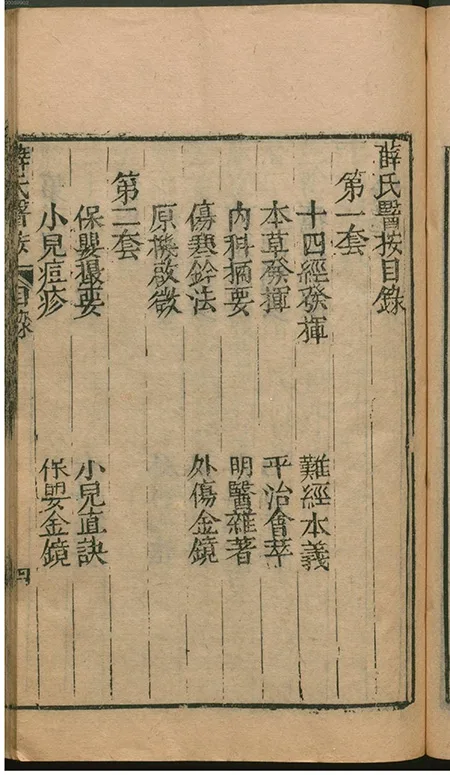 薛氏醫按目錄
第一套
十四經發揮 難經本義
本草發揮 平治會萃
內科摘要 明醫雜著
傷寒鈐法 外傷金鏡
原機啟微
第二套
保嬰撮要 小兒直訣
小兒痘疹 保嬰金鏡
薛氏醫按 目錄 四